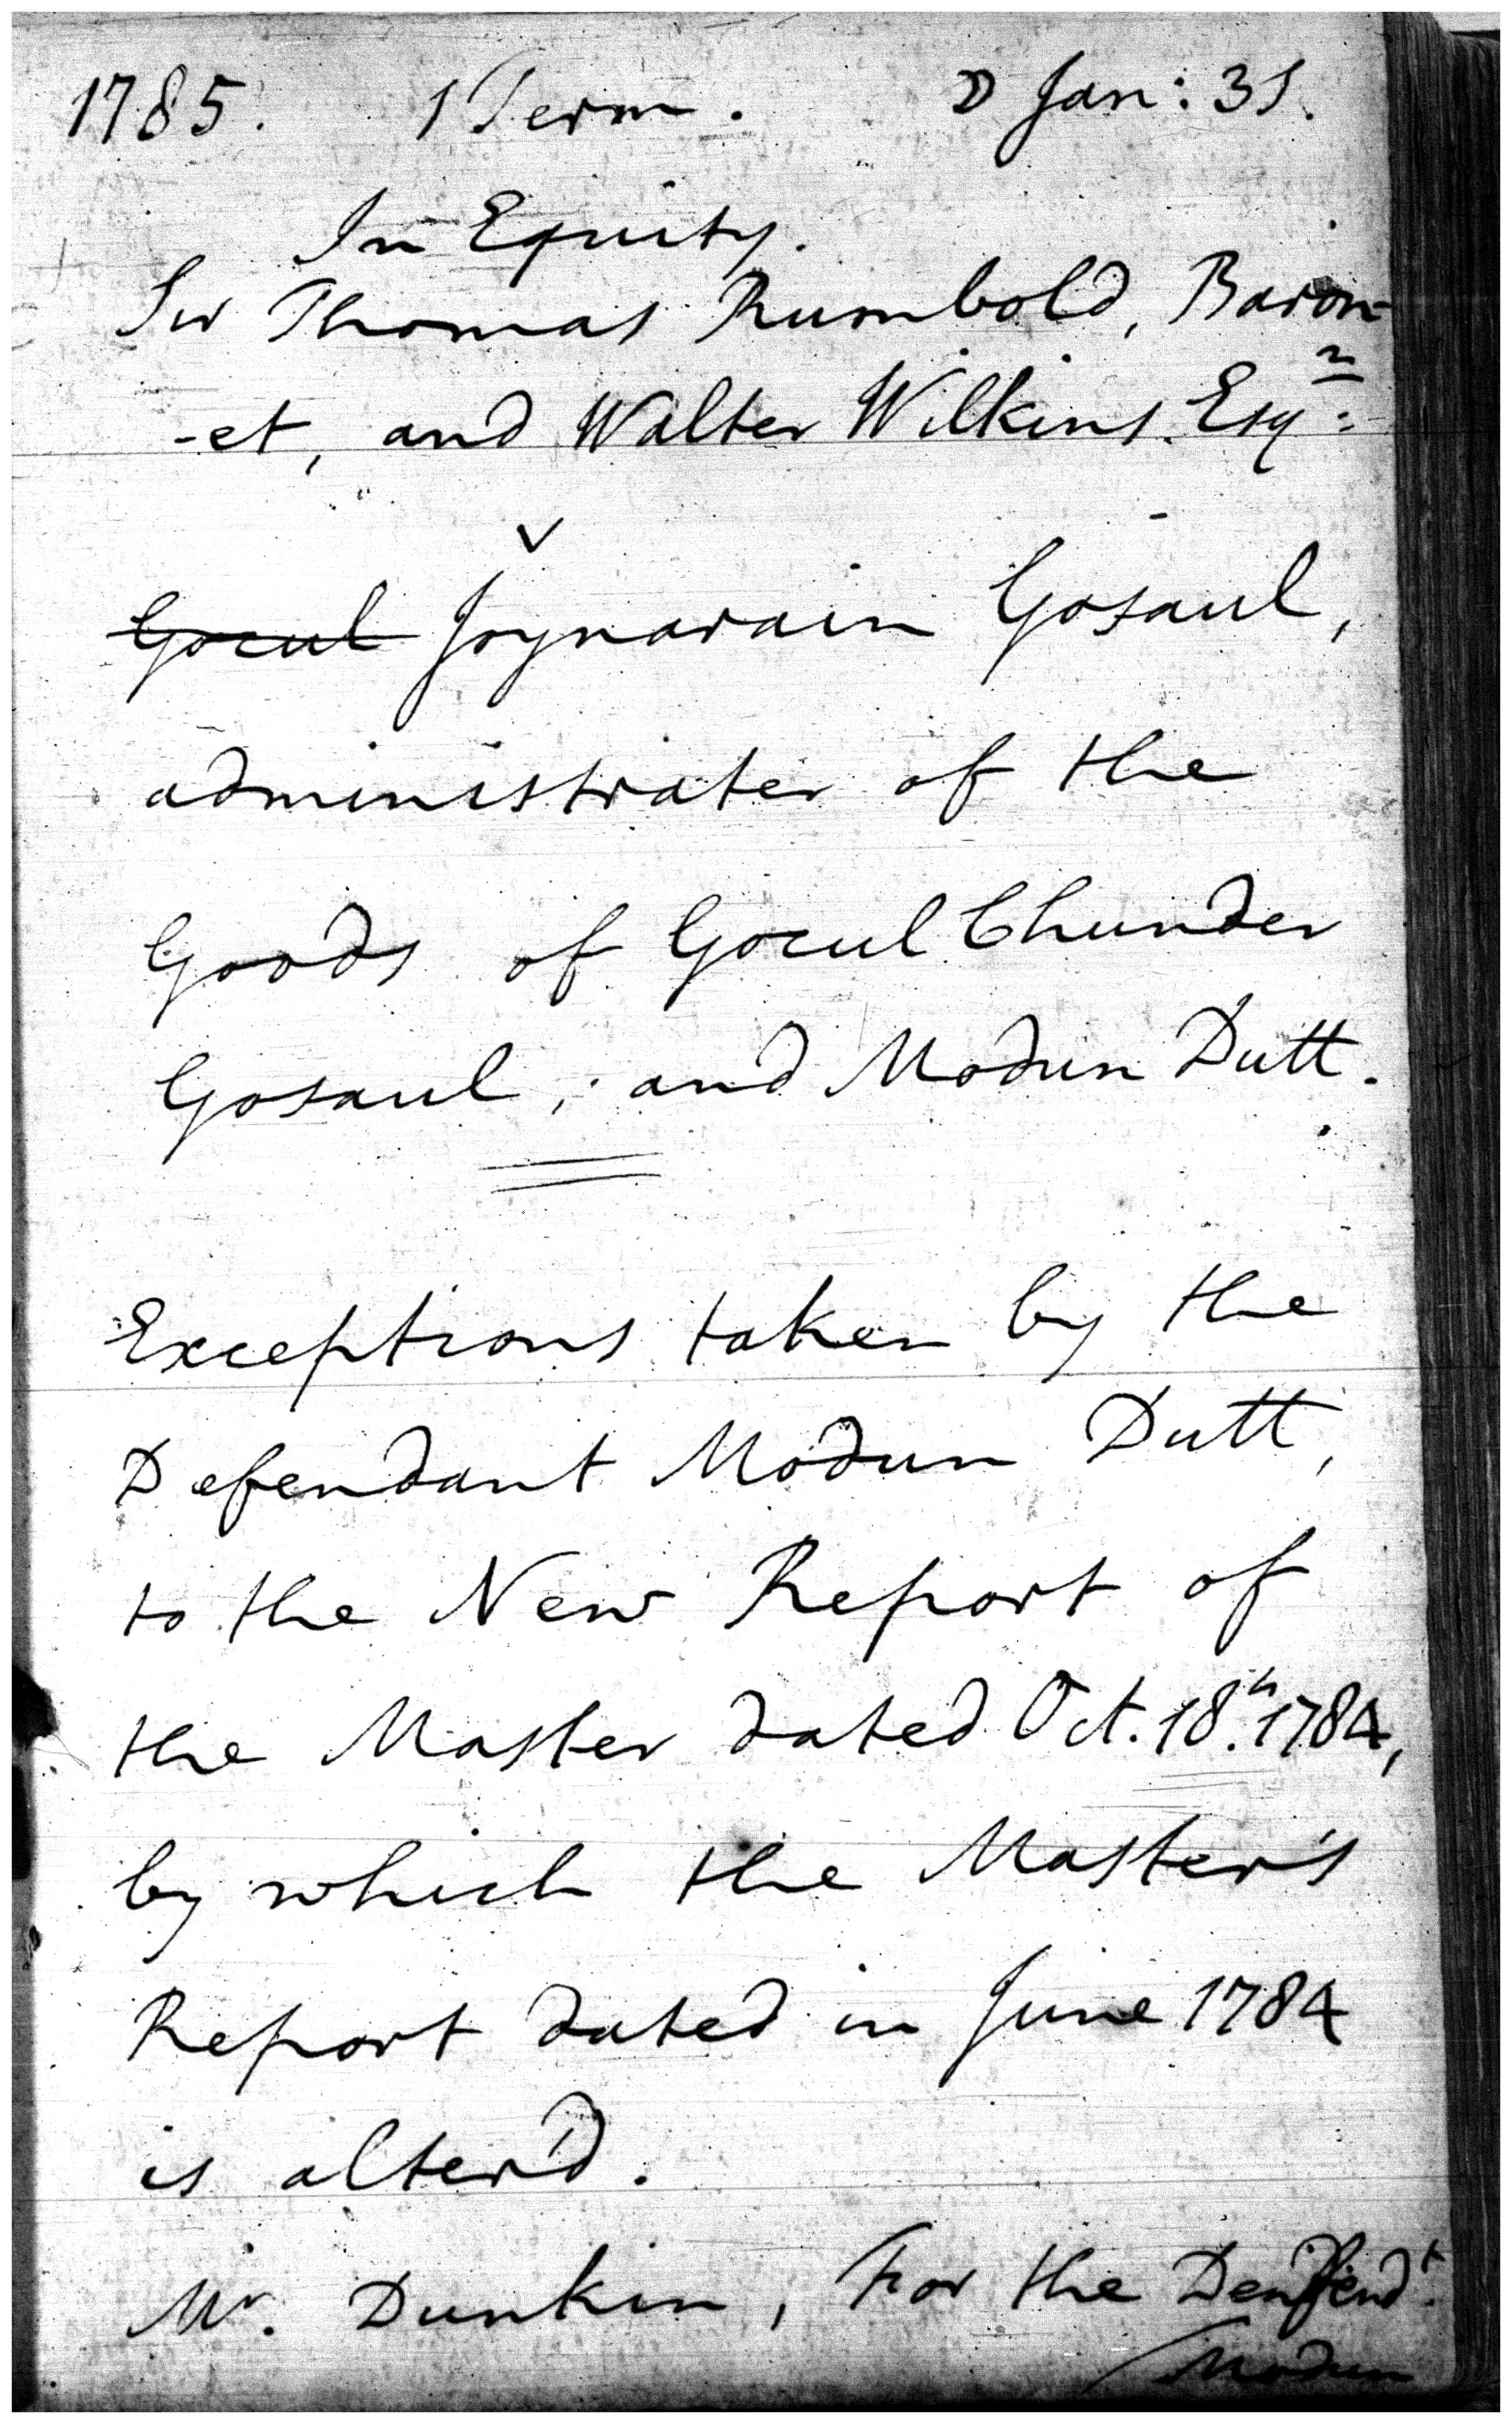 1785. 1 Term. ☽ Jan: 31.
In Equity.
Sir Thomas Rumbold, Baron-
-et, and Walter Wilkins. Esqr:
v
Gocul Joynarain Gosaul,
administrater of the
Goods of Gocul Chunder
Gosaul; and Modun Dutt.
Exceptions taken by the
Defendant Modun Dutt,
to the New Report of
the Master dated Oct. 18.h 1784,
by which the Master's
Report dated in June 1784
is alter'd.
Mr. Dunkin, For the Defendt.
Modun